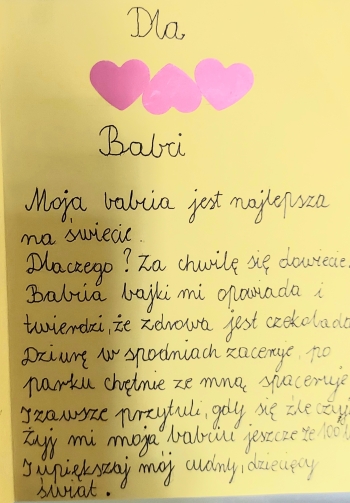 Dla
Babci
Moja babcia jest najlepsza
na świecie.
Dlaczego? Za chwilę się dowiecie.
Babcia bajki mi opowiada i
twierdzi, że zdrowa jest czekolada
Dziurę w spodniach zaceruje, po
parku chętnie ze mną spaceruje
I zawsze przytuli, gdy się źle czuję
Żyj mi moja babciu jeszcze ze 100 l
I upiększaj mój cudny, dziecięcy
świat.